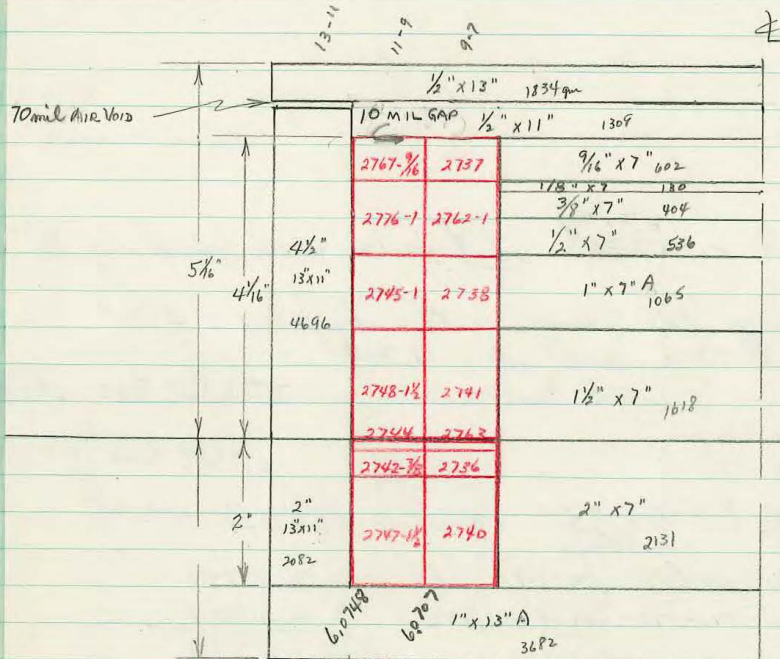 13-11 11-9 9-7
℄
1/2" x 13" 1834 gm
70 mil AIR VOID
10 MIL GAP 1/2" x 11" 1309
2767-9/16 2737 9/16" x 7" 602
1/8" x 7 130
2776-1 2762-1 3/8" x 7" 404
1/2" x 7" 536
4 1/2"
13"x11"
4696
5 1/16"
4 1/16"
2745-1 2738 1" x 7" A
1065
2748-1 1/2 2741 1 1/2" x 7" 1618
2744 2763
2742-3/8 2736
2"
2"
13"x11"
2082
2747-1 1/2 2740
2" x 7"
2131
6.0748
1" x 13" A
3682